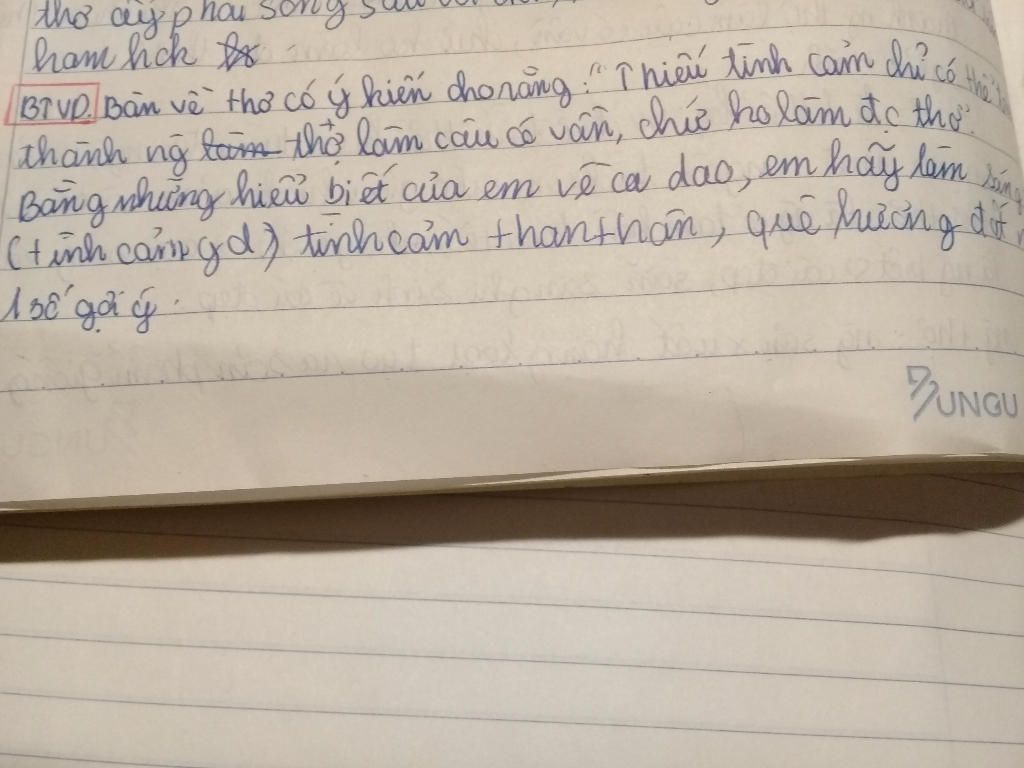 thơ ấy phải sống
ham hch
BTVD. Bàn về thơ có ý kiến cho rằng: "Thiếu tình cảm chỉ có thể
thành ng làm thợ làm câu có vần, chứ ko làm đc thơ.
Bằng những hiểu biết của em về ca dao, em hãy làm sáng
(tình cảm gđ) tình cảm than thân, quê hương đất
1 số gợi ý.
UNGU